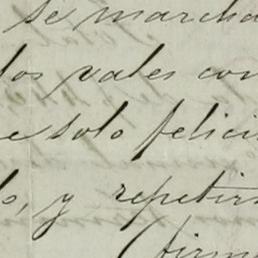 se marcha
los vales con
e solo felici
o, y repetir
firm